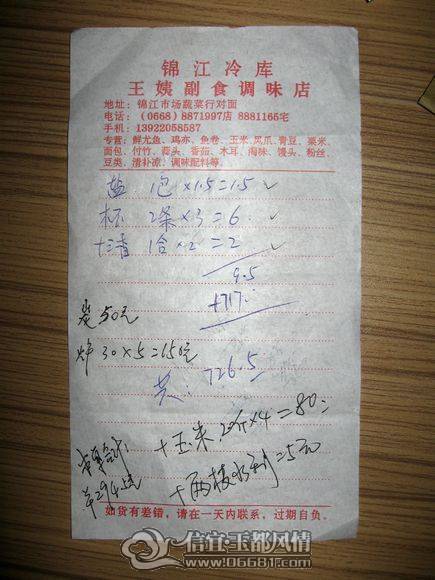 锦江冷库
王姨副食调味店
地址：锦江市场蔬菜行对面
电话：(0668) 8871997店 8881165宅
手机：13922058587
专营：鲜尤鱼、鸡亦、鱼卷、玉米、凤爪、青豆、粟米、
面包、付竹、蒜头、香茄、木耳、海味、馒头、粉丝、
豆类、清补凉、调味配料等。
盐 1包×1.5=1.5 ✓
杯 2条×3=6. ✓
十三香 1合×2=2 ✓
9.5
+717.
炭50元
炉30×5=150元
共：726.5
+玉米20斤×4=80元
+两枝水刂=5元
如货有差错，请在一天内联系，过期自负。
信宜·玉都风情
www.06681.com